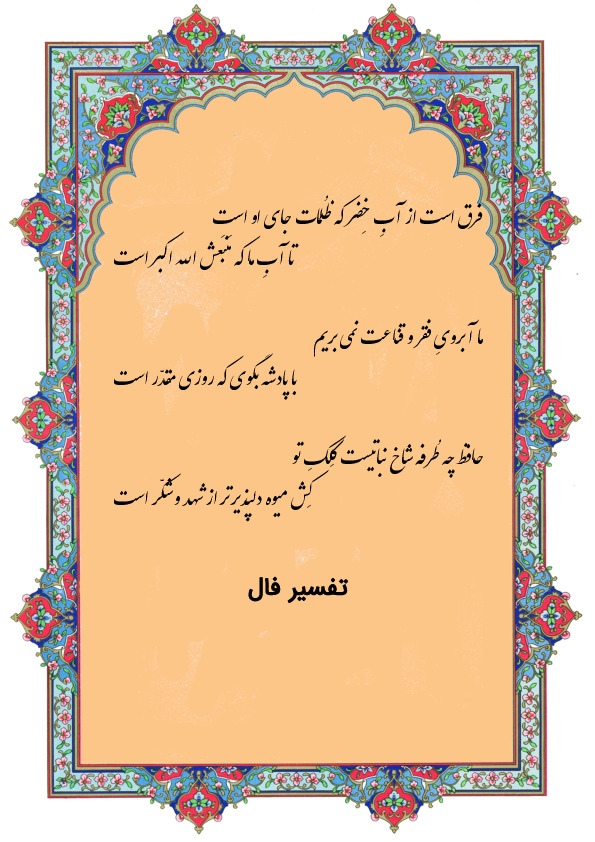 فرق است از آبِ خِضر که ظُلمات جای او است
تا آبِ ما که مَنبَعش الله اکبر است
ما آبرویِ فقر و قناعت نمی‌بریم
با پادشه بگوی که روزی مقدّر است
حافظ چه طُرفه شاخ نباتیست کِلکِ تو
کِش میوه دلپذیرتر از شهد و شکّر است
تفسیر فال